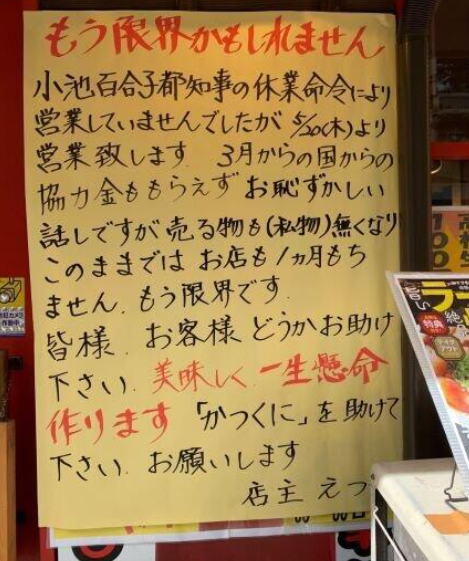 もう限界かもしれません
小池百合子都知事の休業命令により
営業していませんでしたが 5/20(木)より
営業致します 3月からの国からの
協力金ももらえず お恥ずかしい
話しですが 売る物も(私物)無くなり
このままでは お店も1ヵ月もち
ません. もう限界です.
皆様. お客様 どうかお助け
下さい. 美味しく 一生懸命
作ります 「かつくに」を助けて
下さい. お願いします
店主 えつ
防犯カメラ
作動中
ラー
旨い
絶
特典
テイク
アウト